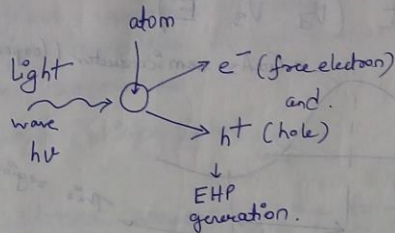 atom
Light
wave
hν
e⁻ (free electron)
and.
h⁺ (hole)
↓
EHP
generation.